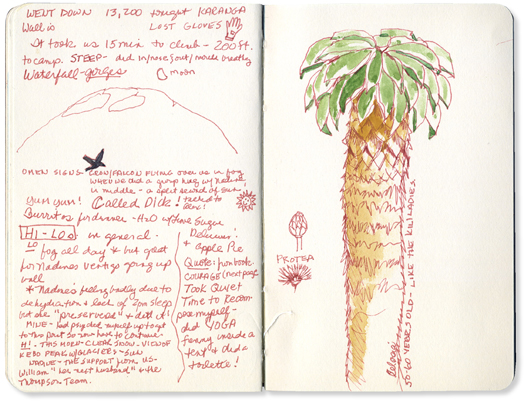 WENT DOWN 13,200 tonight KARANGA
Wall is LOST GLOVES
It took us 15 min to climb - 200 ft.
to camp. STEEP - did in/nose/out/mouth breathing
Waterfall - gorges
moon
OMEN SIGNS - CROW/FALCON FLYING over us in fog
WHEN WE DID a group hug w/ Nadine
in middle - a split second of sun
yum yum! Called Dick! talked to
Burritos for dinner - H2O w/ some Sugar
HI-LOs in general.
LO fog all day * but great
for Nadine's vertigo going up
wall
* Nadine's feeling badly due to
dehydration & lack of sleep
but she "preserves" & did it!
MINE - had psyched myself up to get
to this part so now have to continue
HI. THIS MORN - CLEAR SNOW. VIEW OF
KEBO PEAK W/GLACIERS - SUN
- THE SUPPORT from US -
William "her next husband" & the
Thompson Team.
Delicious!
* apple Pie
Quote: from book
COURAGE (next page)
TOOK QUIET
Time to Recom-
pose myself -
did YOGA
inside a
tent * & did a
toilette!
PROTEA
50-60 YEARS OLD - LIKE THE KILIMANJARO